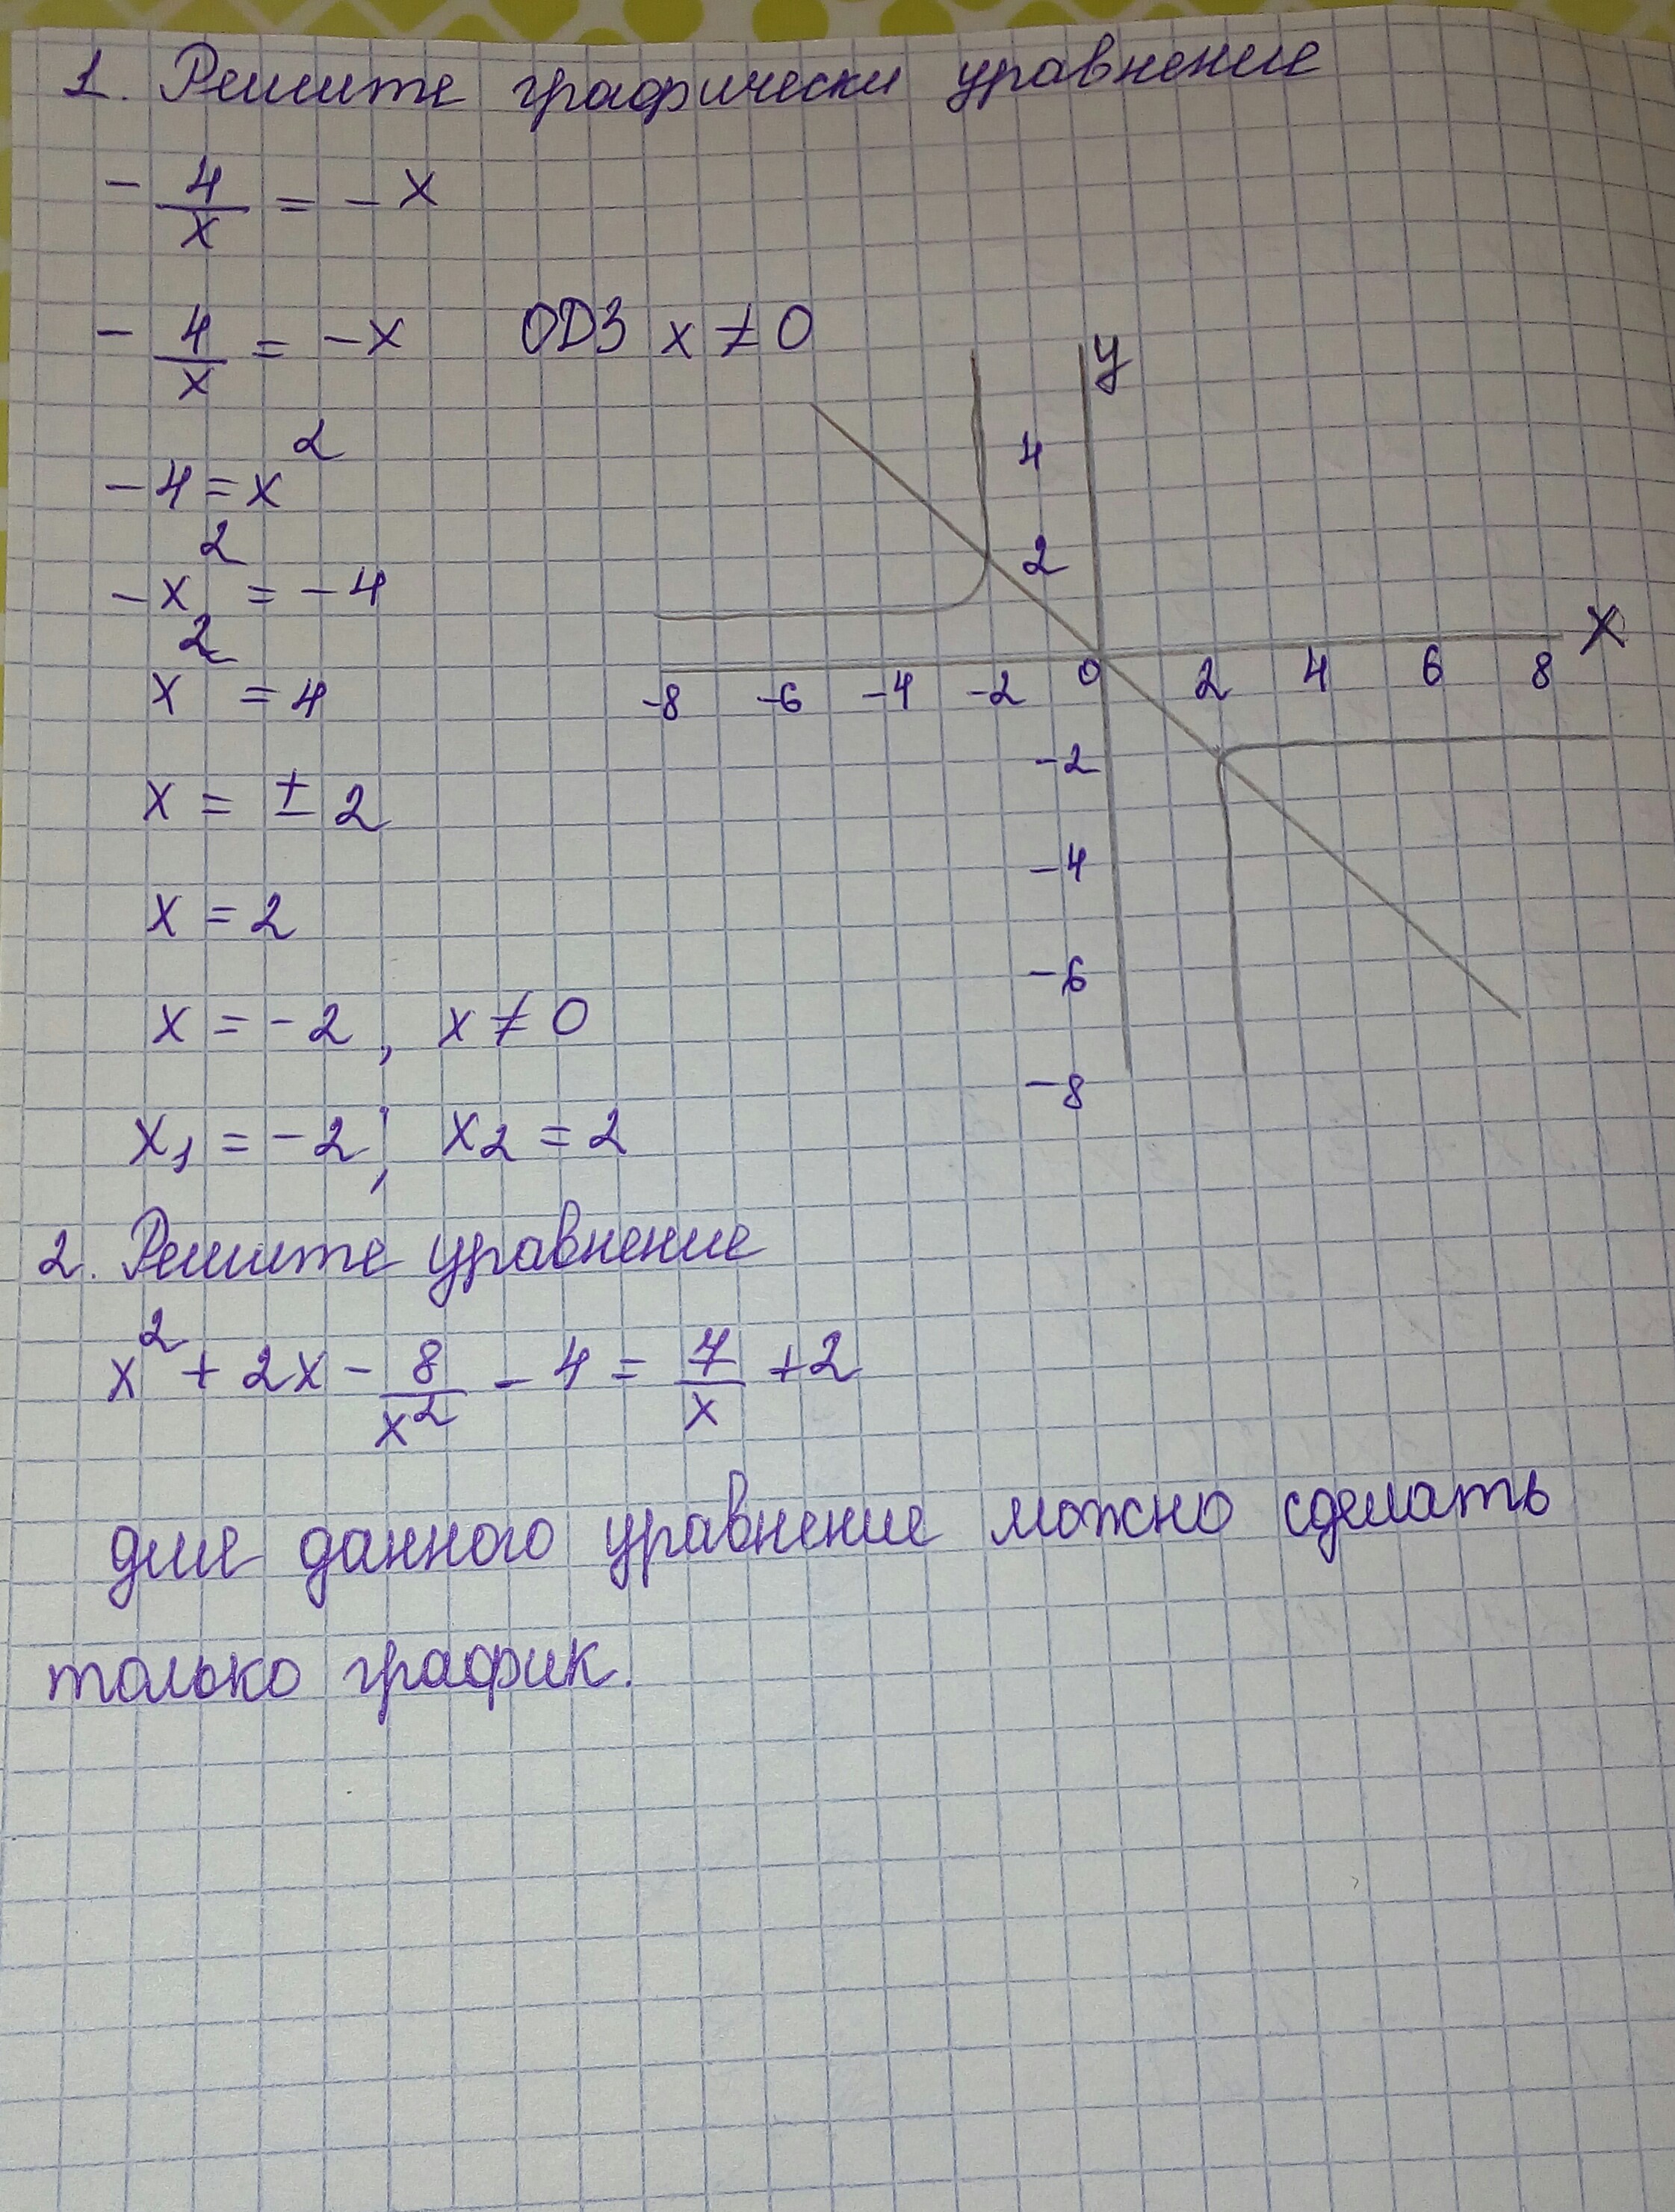 1. Решите графически уравнение
- 4/x = - x
- 4/x = -x ОДЗ x ≠ 0
-4 = x²
-x² = -4
x² = 4
x = ± 2
x = 2
x = -2, x ≠ 0
x₁ = -2; x₂ = 2
y
4
2
-8 -6 -4 -2 0 2 4 6 8 X
-2
-4
-6
-8
2. Решите уравнение
x² + 2x - 8/x² - 4 = 7/x + 2
для данного уравнение можно сделать
только график.